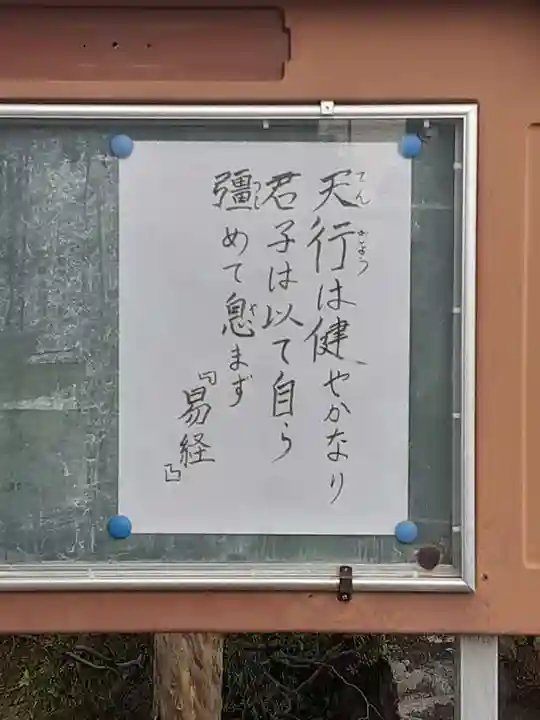 天行は健やかなり
てん
かょう
君子は以て自ら
彊めて息まず
つと
『易経』